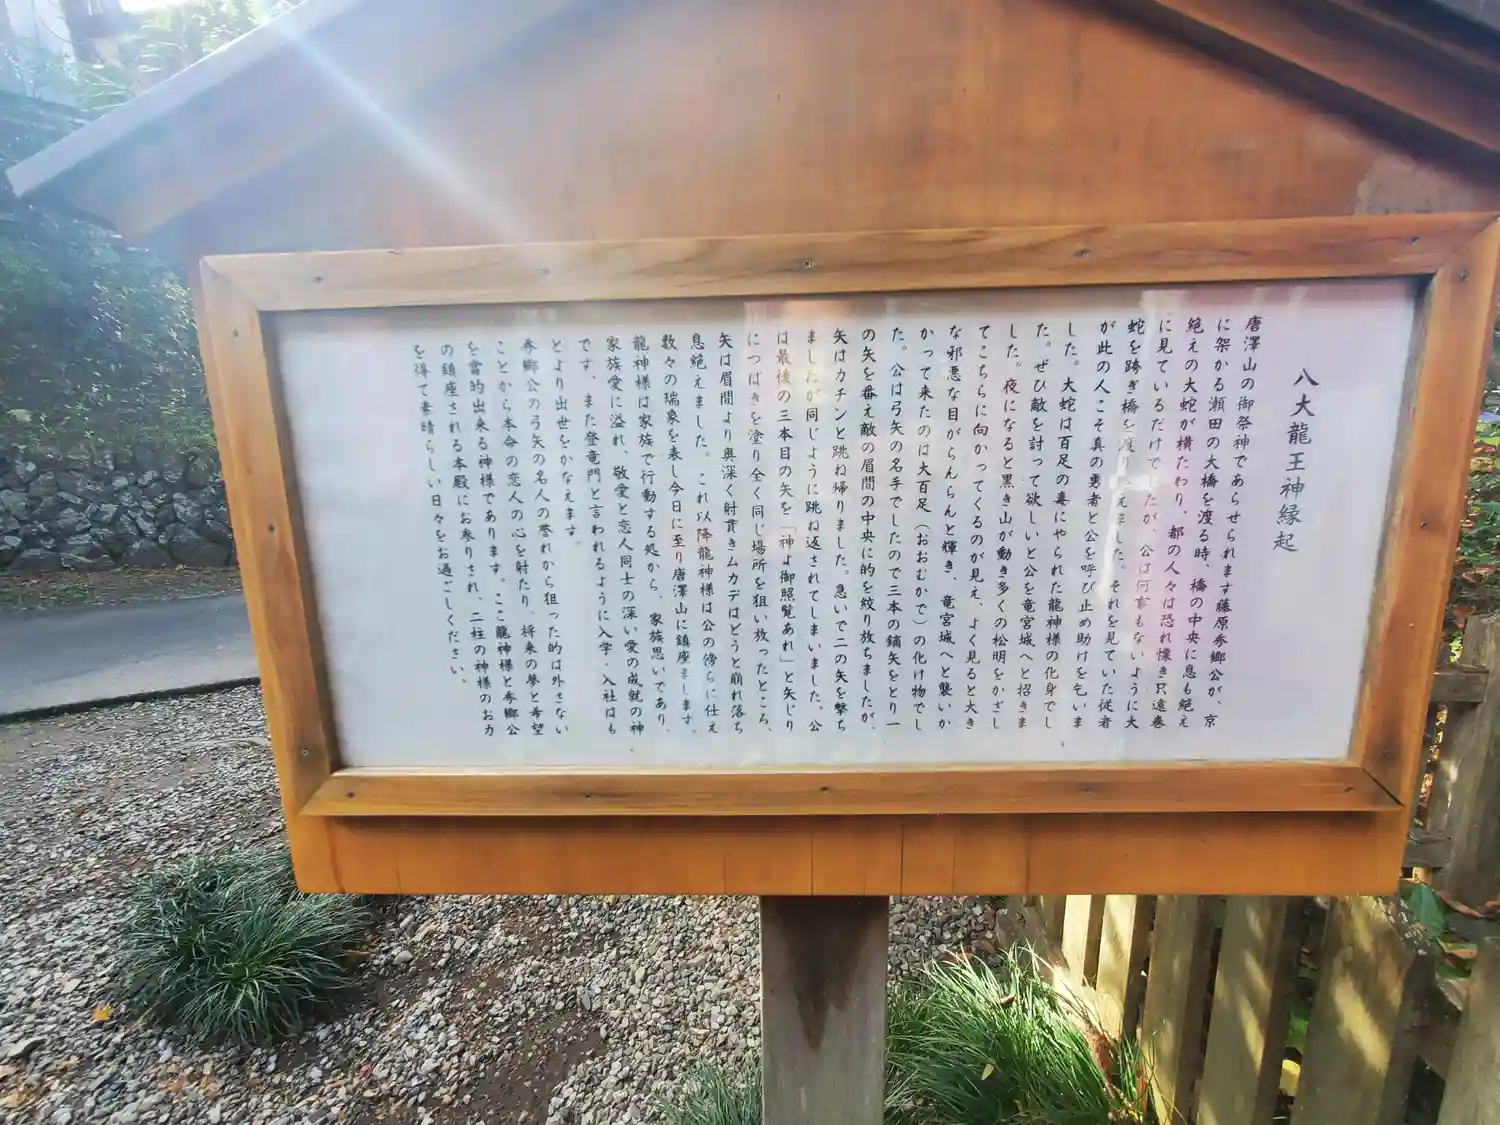 八大龍王神縁起
唐澤山の御祭神であらせられます藤原秀郷公が、京
に架かる瀬田の大橋を渡る時、橋の中央に息も絶え
絶えの大蛇が横たわり、都の人々は恐れ慄き只遠巻
に見ているだけでしたが、公は何事もないように大
蛇を跨ぎ橋を渡り終えました。それを見ていた従者
が此の人こそ真の勇者と公を呼び止め助けを乞いま
した。大蛇は百足の毒にやられた龍神様の化身でし
た。ぜひ敵を討って欲しいと公を竜宮城へと招きま
した。夜になると黒き山が動き多くの松明をかざし
てこちらに向かってくるのが見え、よく見ると大き
な邪悪な目がらんらんと輝き、竜宮城へと襲いか
かって来たのは大百足（おおむかで）の化け物でし
た。公は弓矢の名手でしたので三本の鏑矢をとり一
の矢を番え敵の眉間の中央に的を絞り放ちましたが、
矢はカチンと跳ね帰りました。急いで二の矢を撃ち
ましたが同じように跳ね返されてしまいました。公
は最後の三本目の矢を「神よ御照覧あれ」と矢じり
につばきを塗り全く同じ場所を狙い放ったところ、
矢は眉間より奥深く射貫きムカデはどうと崩れ落ち
息絶えました。これ以降龍神様は公の傍らに仕え
数々の瑞象を表し今日に至り唐澤山に鎮座します。
龍神様は家族で行動する処から、家族思いであり、
家族愛に溢れ、敬愛と恋人同士の深い愛の成就の神
です。また登竜門と言われるように入学・入社はも
とより出世をかなえます。
秀郷公の弓矢の名人の誉れから狙った的は外さない
ことから本命の恋人の心を射たり、将来の夢と希望
を當的出来る神様であります。ここ龍神様と秀郷公
の鎮座される本殿にお参りされ、二柱の神様のお力
を得て素晴らしい日々をお過ごしください。